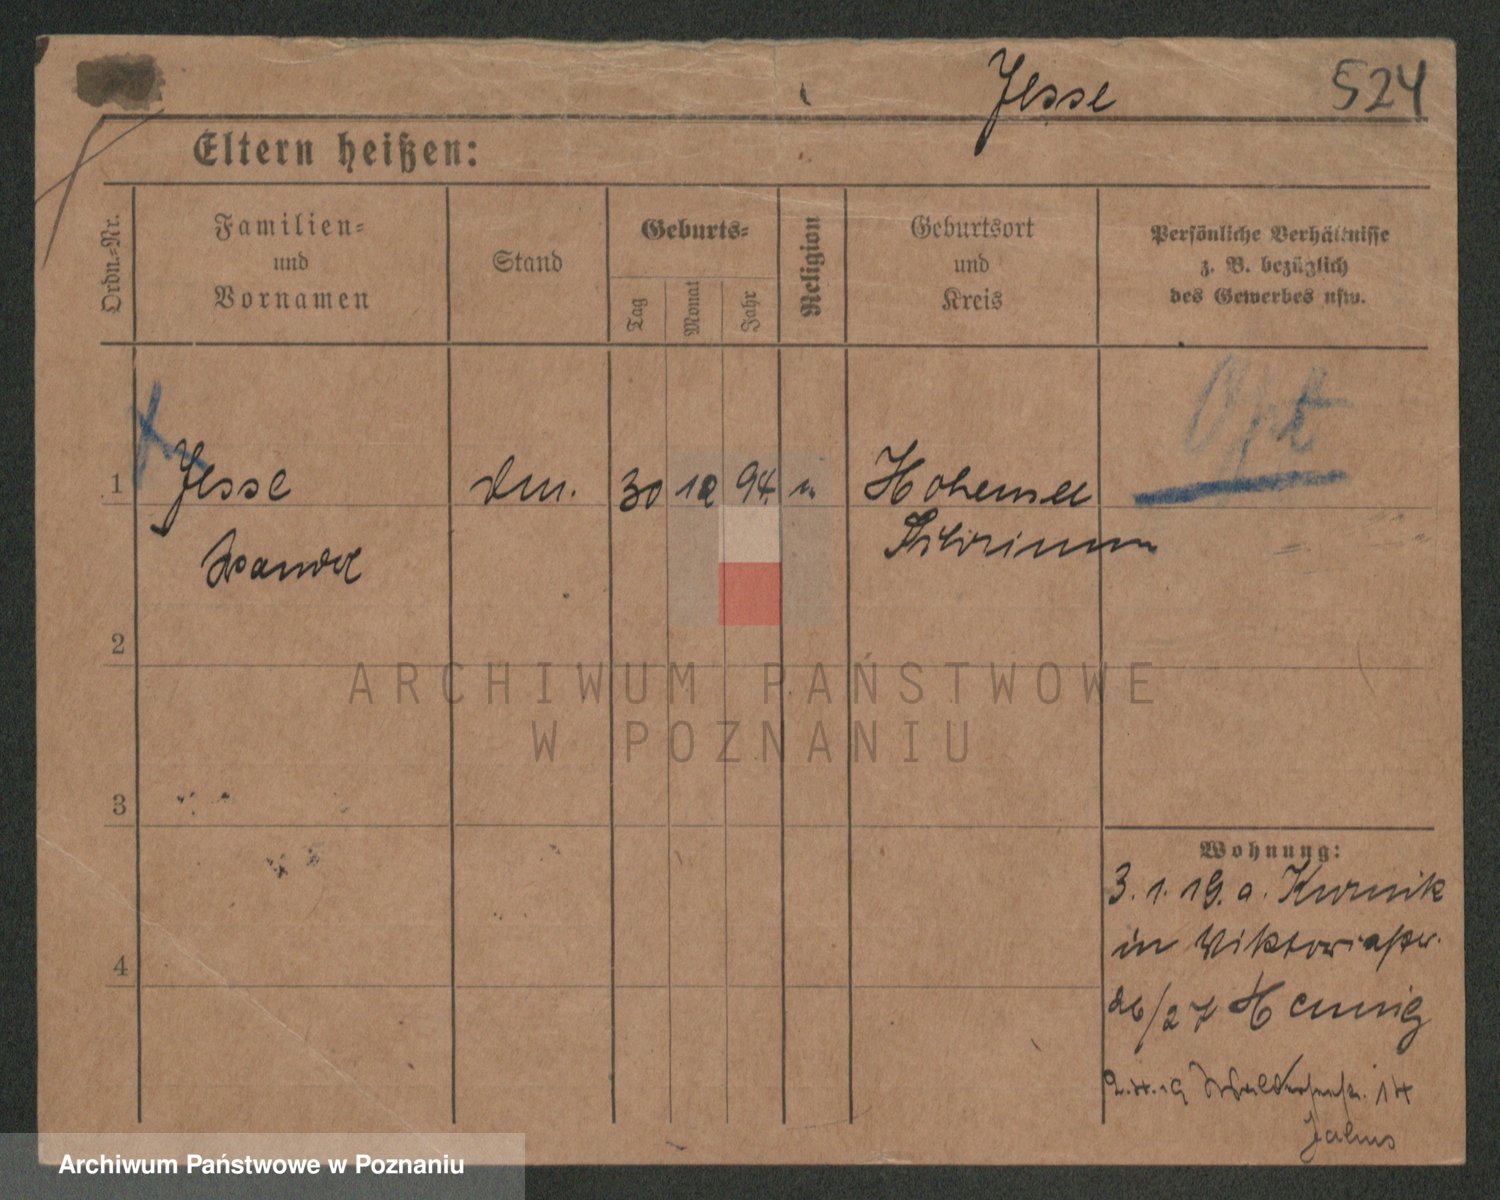 Jesse 524
Eltern heißen:
Ordn.-Nr.
Familien-
und
Vornamen
Stand
Geburts-
Tag
Monat
Jahr
Religion
Geburtsort
und
Kreis
Persönliche Verhältnisse
z. B. bezüglich
des Gewerbes usw.
Opt
1 Jesse 30 12 94 Hohensee
Wanda
2
ARCHIWUM PAŃSTWOWE
W POZNANIU
3
Wohnung:
3. 1. 19. a. Kurnik
in Viktoriastr.
26/27 Hennig
4
2.4.19 14
Archiwum Państwowe w Poznaniu